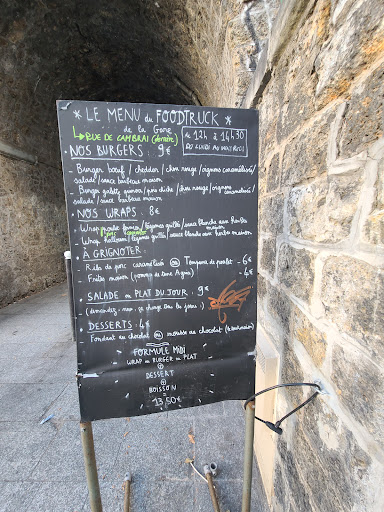 * LE MENU du FOODTRUCK *
de la Gare
↳ RUE DE CAMBRAI (derrière)
de 12h à 14h30
DU LUNDI AU VENDREDI
• NOS BURGERS : 9€
- Burger boeuf / cheddar / chou rouge / oignons caramélisés /
salade / sauce barbecue maison
- Burger galette quinoa / pois chiche / chou rouge / oignons caramélisés
/ salade / sauce barbecue maison
• NOS WRAPS : 8€
- Wrap / légumes grillés / sauce blanche aux herbes
porc maison
- Wrap halloumi / légumes grillés / sauce blanche aux herbes maison
• À GRIGNOTER :
- Ribs de porc caramélisés ou Tempura de poulet - 6€
- Frites maison (pommes de terre Agria) - 4€
• SALADE ou PLAT DU JOUR : 9€
(demandez-nous, ça change tous les jours :)
• DESSERTS : 4€
Fondant au chocolat ou mousse au chocolat (maison)
FORMULE MIDI
WRAP ou BURGER ou PLAT
+
DESSERT
+
BOISSON
=
13,50€